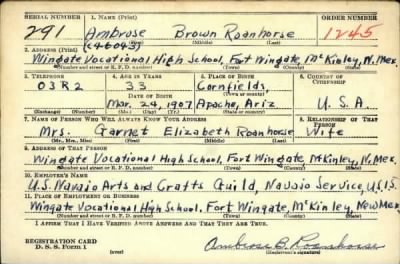 SERIAL NUMBER 1. NAME (Print) ORDER NUMBER
291 Ambrose Brown Roanhorse 1245
(C46043) (First) (Middle) (Last)
2. ADDRESS (Print)
Wingate Vocational High School, Fort Wingate, McKinley, N. Mex.
(Number and street or R. F. D. number) (Town) (County) (State)
3. TELEPHONE 4. AGE IN YEARS 5. PLACE OF BIRTH 6. COUNTRY OF CITIZENSHIP
03R2 33 Cornfields,
DATE OF BIRTH (Town or county)
Mar. 24, 1907 Apache, Ariz U.S.A.
(Exchange) (Number) (Mo.) (Day) (Yr.) (State or country)
7. NAME OF PERSON WHO WILL ALWAYS KNOW YOUR ADDRESS 8. RELATIONSHIP OF THAT PERSON
Mrs. Garnet Elizabeth Roanhorse Wife
(Mr., Mrs., Miss) (First) (Middle) (Last)
9. ADDRESS OF THAT PERSON
Wingate Vocational High School, Fort Wingate McKinley, N. Mex.
(Number and street or R. F. D. number) (Town) (County) (State)
10. EMPLOYER'S NAME
U.S. Navajo Arts and Crafts Guild, Navajo Service, U.S.I.S.
11. PLACE OF EMPLOYMENT OR BUSINESS
Wingate Vocational High School, Fort Wingate, McKinley, New Mex
(Number and street or R. F. D. number) (Town) (County) (State)
I AFFIRM THAT I HAVE VERIFIED ABOVE ANSWERS AND THAT THEY ARE TRUE.
REGISTRATION CARD
D. S. S. Form 1 (over) Ambrose B. Roanhorse